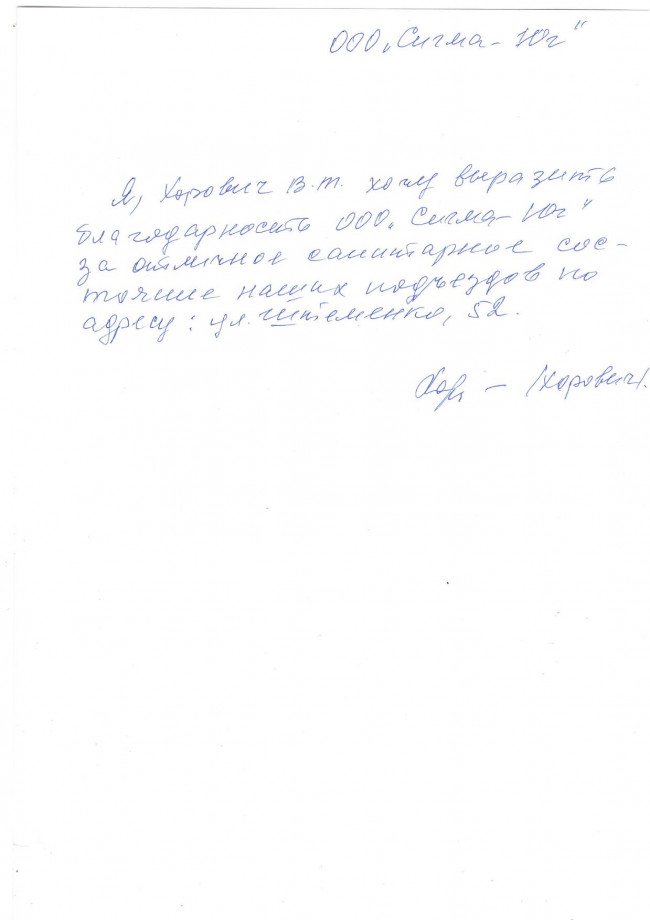 ООО „Сигма-Юг"
Я, Хорович В.Т. хочу выразить
благодарность ООО „Сигма-Юг"
за отличное санитарное сос-
тояние наших подъездов по
адресу: ул. Штеменко, 52.
Хор – /Хорович/.